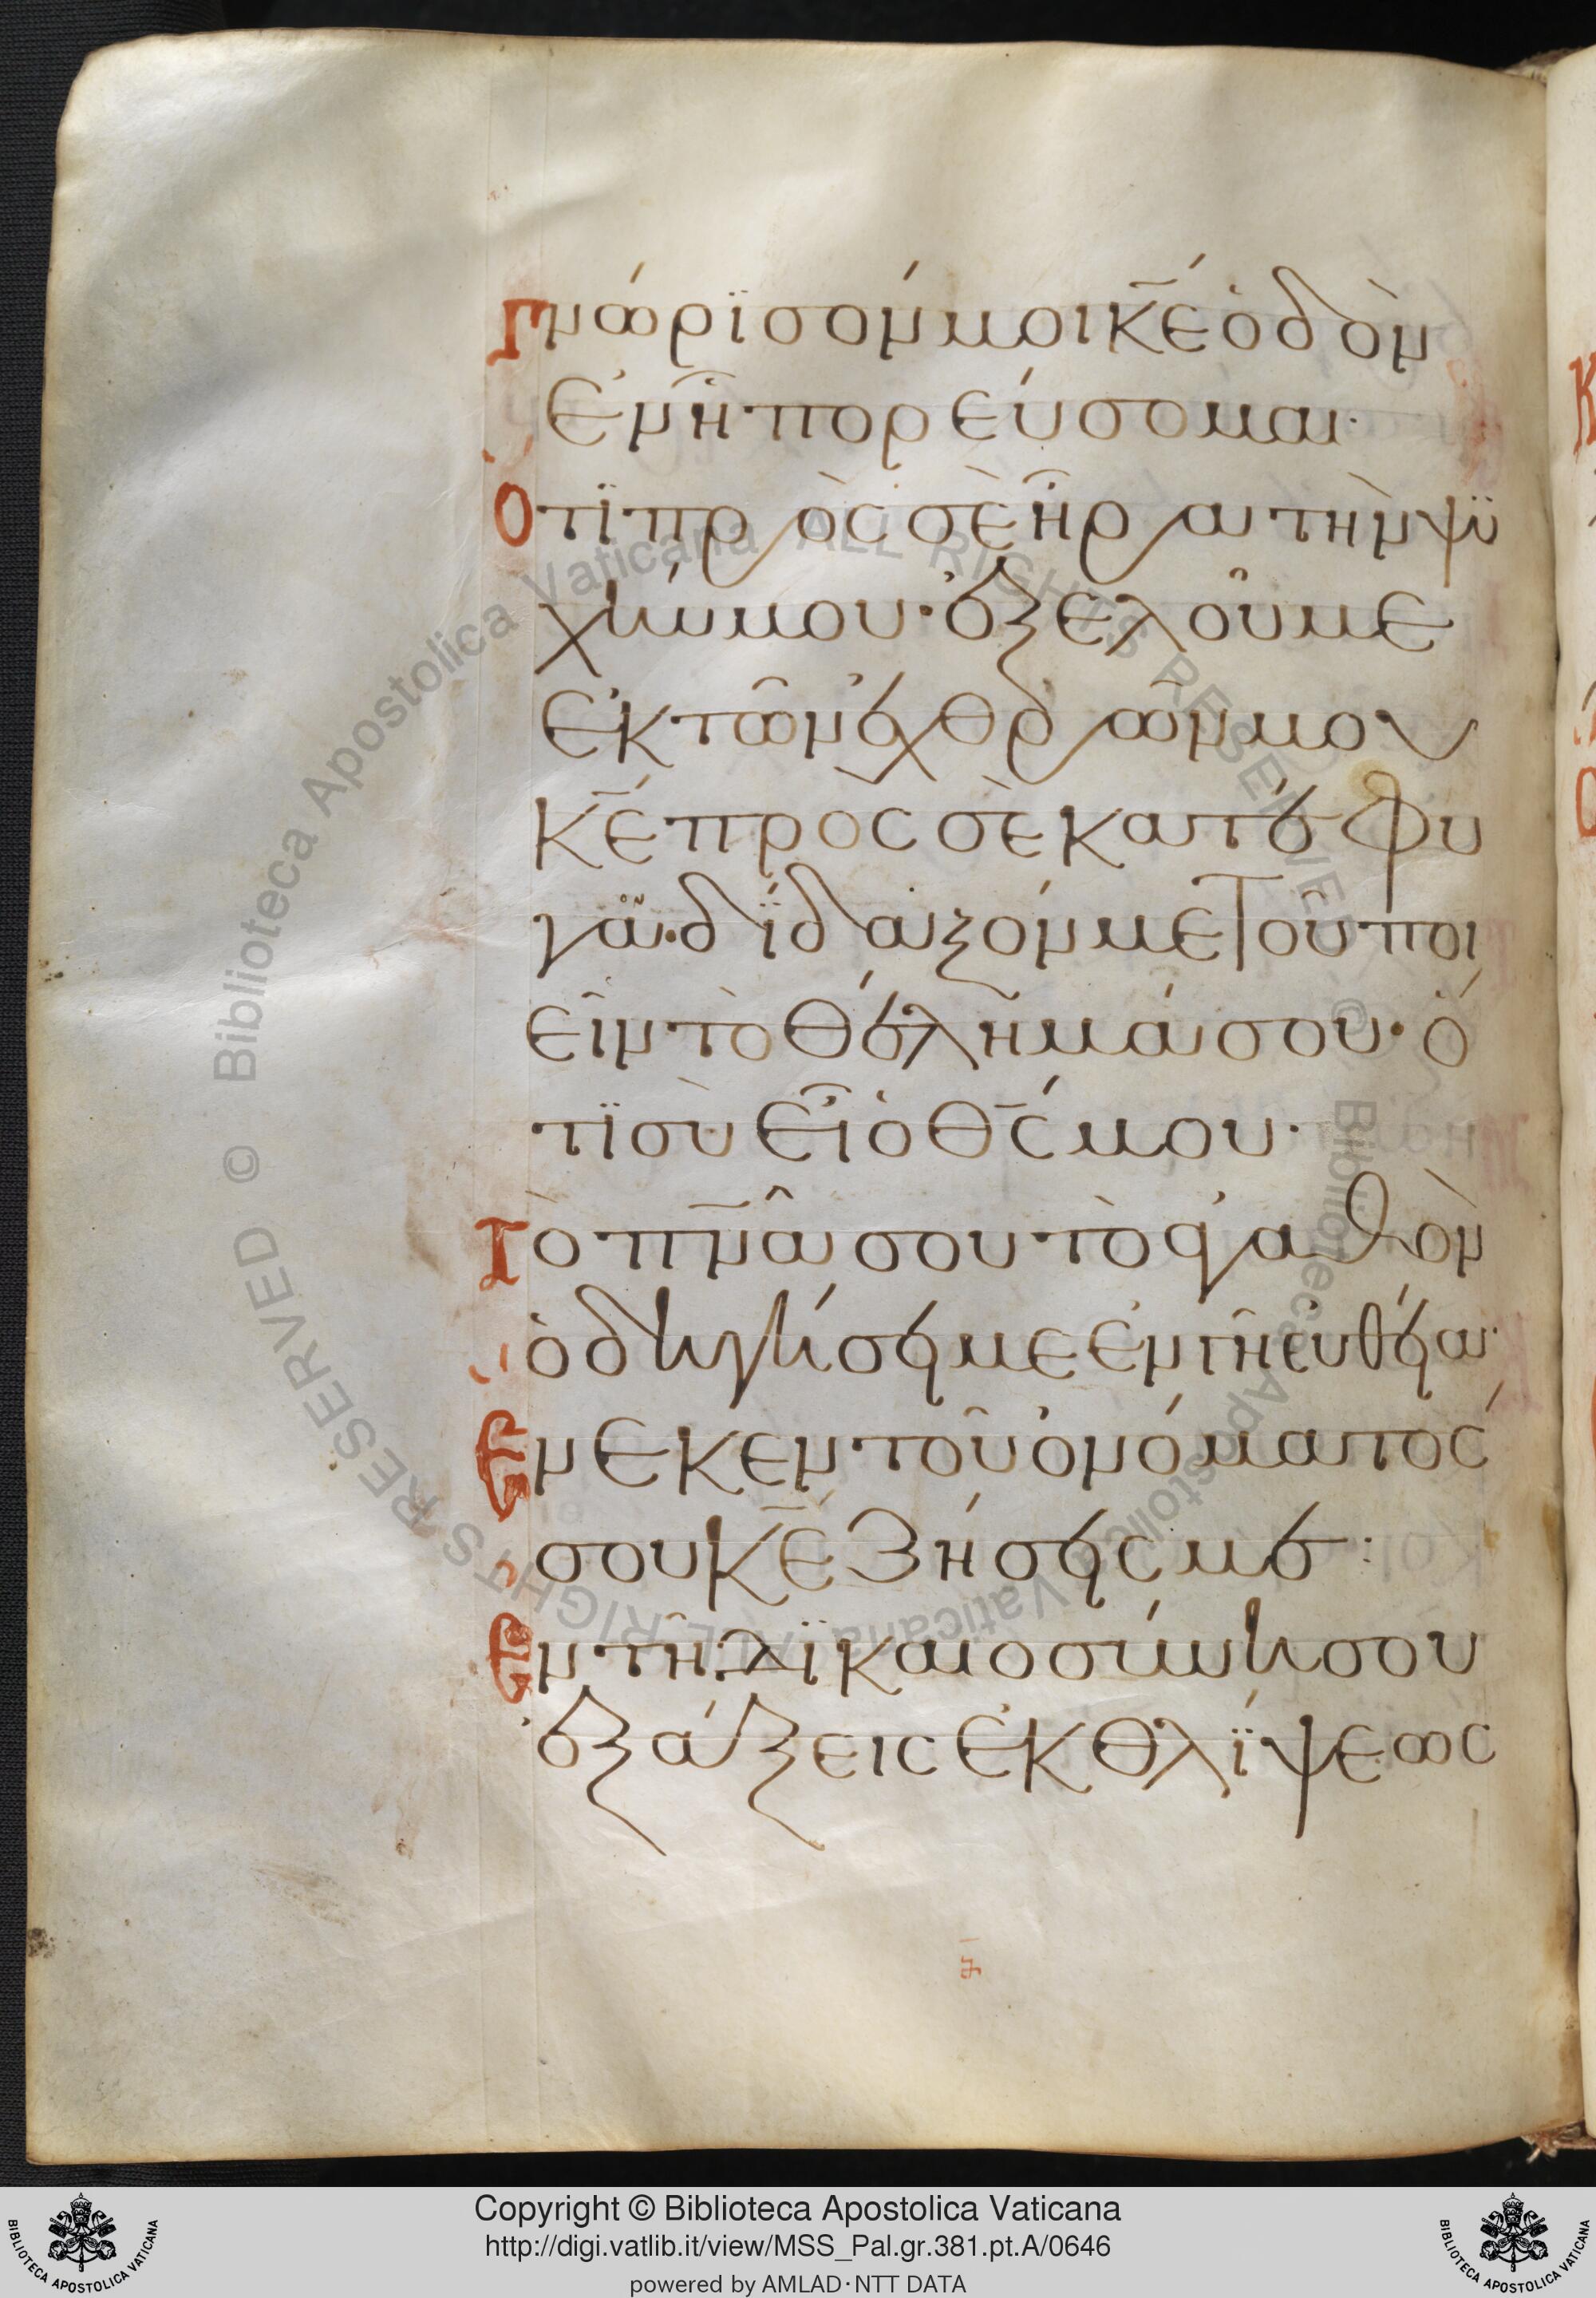 Γνώρϊσόν μοι κ̅έ ὁδὸν
ἐν ᾗ πορεύσομαι·
Ὅτϊ πρὸς σὲ ἦρα τὴν ψϋ
χήν μου· ἐξελοῦ με
ἐκ τῶν ἐχθρῶν μου
κ̅έ πρὸς σὲ κατέφυ
γα· δϊδαξόν με τοῦ ποι
εῖν τὸ θέλημά σου· ὅ
τϊ σὺ εἶ ὁ θ̅ς μου·
Τὸ πν̅ᾶ σου τὸ ἀγαθὸν
ὁδηγήσει με ἐν τῇ εὐθείᾳ·
Ἕνεκεν τοῦ ὀνόματός
σου κ̅έ ζήσεις με:
Ἐν τῇ δϊκαιοσύνῃ σου
ἐξάξεις ἐκ θλίψεως
Biblioteca Apostolica Vaticana ALL RIGHTS RESERVED ©
Biblioteca Apostolica Vaticana ALL RIGHTS RESERVED ©
Copyright © Biblioteca Apostolica Vaticana
http://digi.vatlib.it/view/MSS_Pal.gr.381.pt.A/0646
powered by AMLAD·NTT DATA
BIBLIOTECA APOSTOLICA VATICANA
BIBLIOTECA APOSTOLICA VATICANA